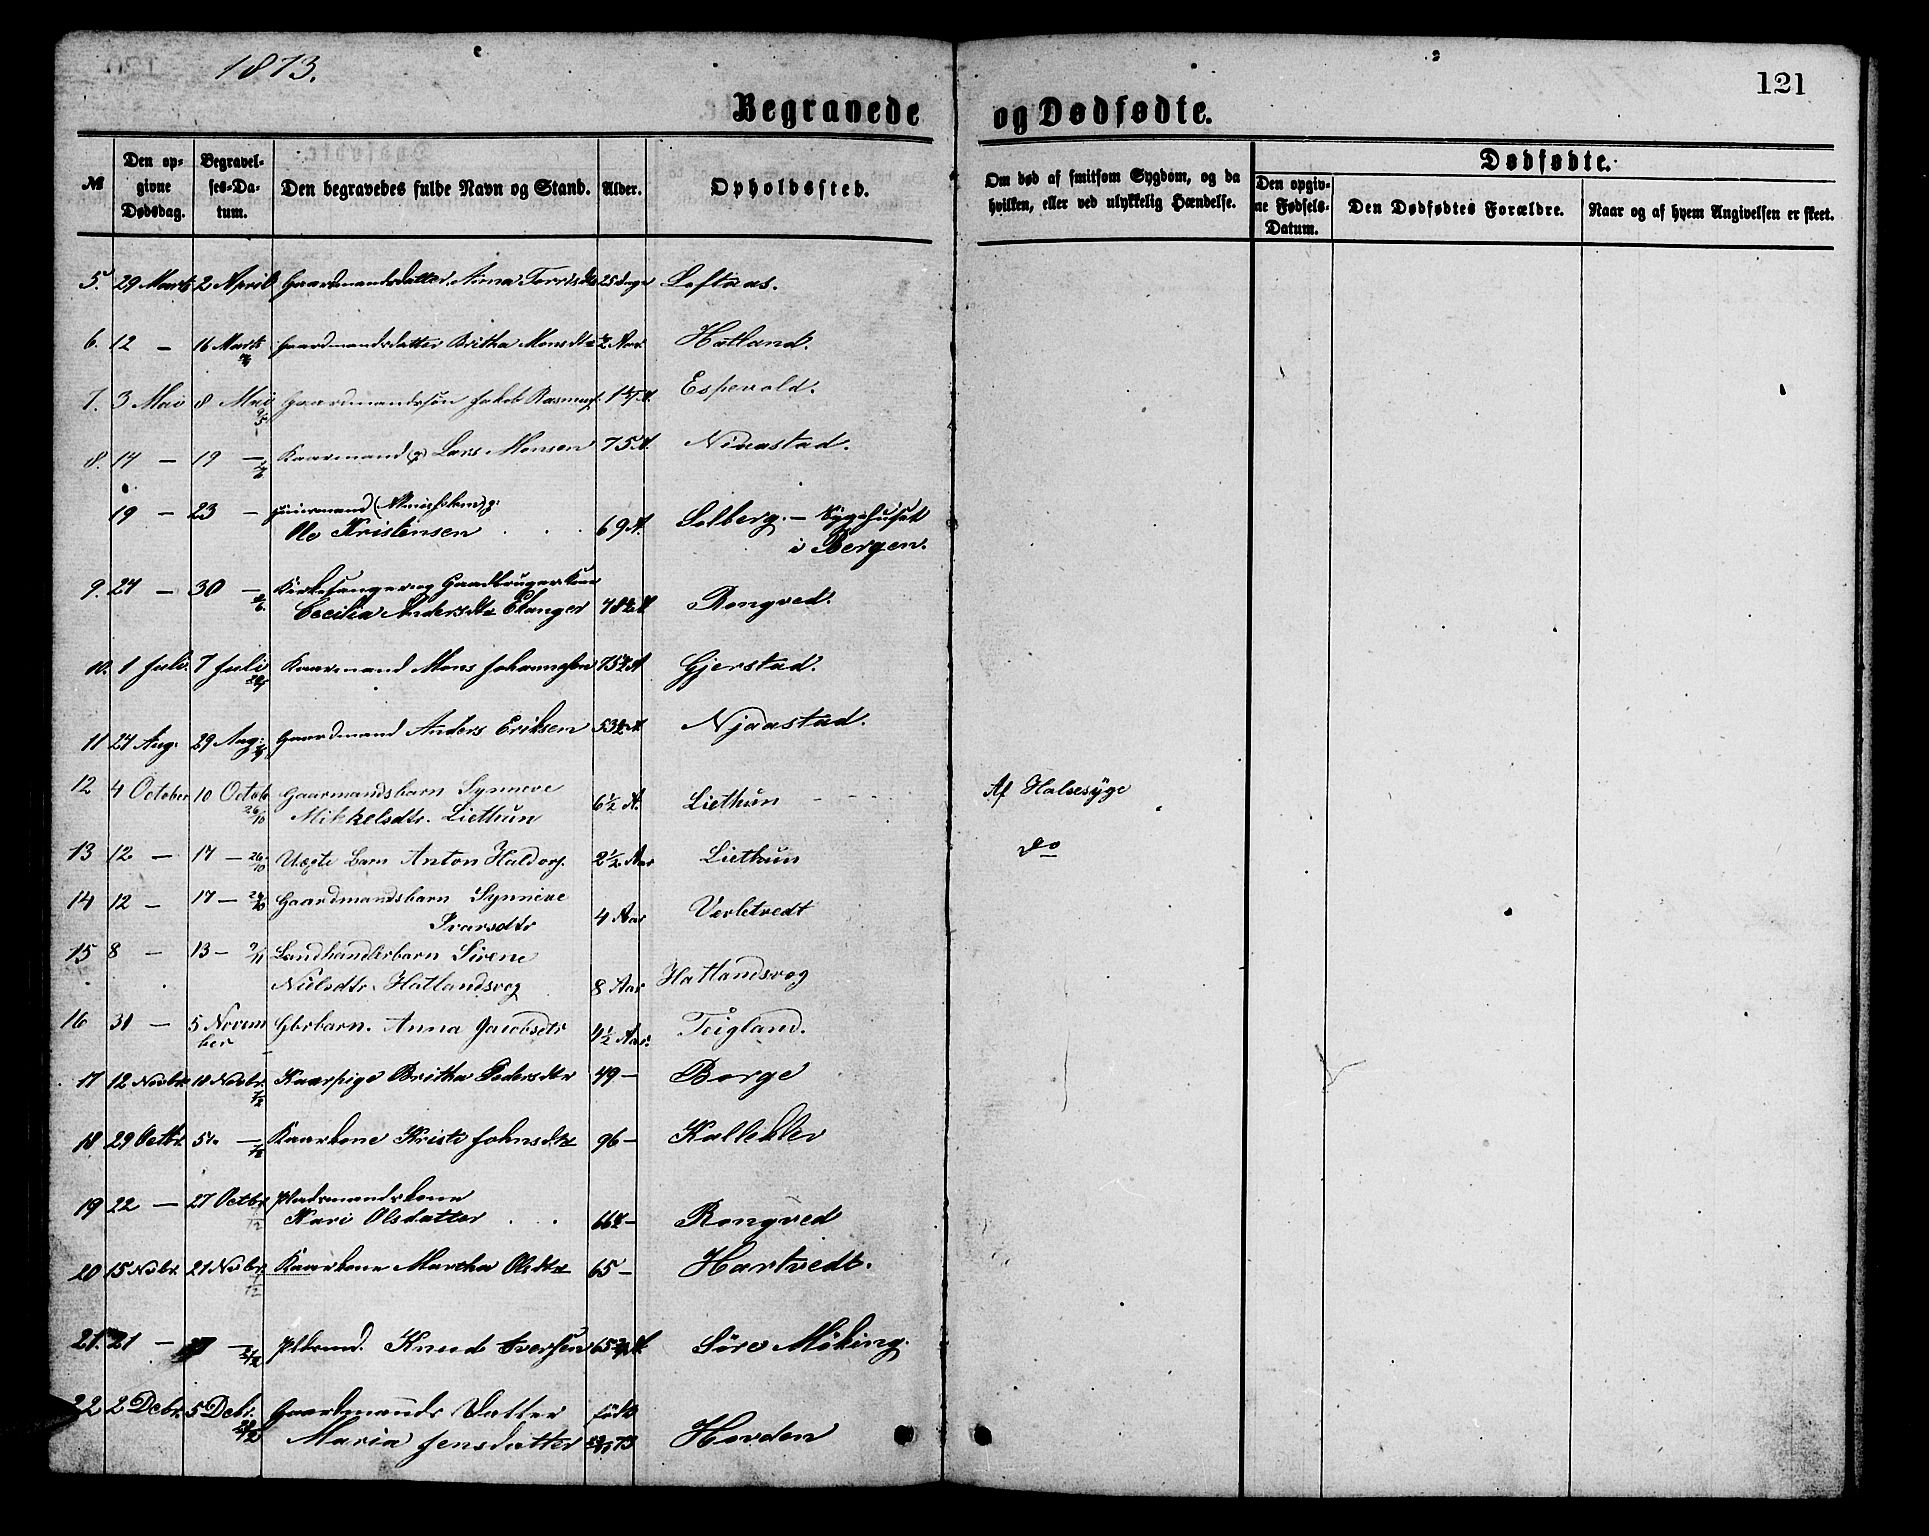 1873.
121
Begravede og Dødfødte.
№
Den opgivne Dødsdag.
Begravelses-Datum.
Den begravedes fulde Navn og Stand.
Alder.
Opholdssted.
Om død af smitsom Sygdom, og da hvilken, eller ved ulykkelig Hændelse.
Dødfødte.
Den opgivne Fødsels-Datum.
Den Dødfødtes Forældre.
Naar og af hvem Angivelsen er skeet.
5. 29 Marts 2 April Gaardmandsdatter Anna Torrisdtr 25 dage Loftaas.
6. 12 — 16 Marts Gaardmandsdatter Britha Monsdtr Aar Hatland.
7. 3 Mai 8 Mai Gaardmandssøn Jakob Rasmus. Espevold.
8. 14 — 19 — Kaarmand Lars Monsen 75 A. Ninastad.
19 — 23 —
Ole Kristensen 69 A. Solberg. — Sygehuset
i Bergen.
9. 24 — 30 — Kirkesanger og Gaardbruger
Cecilia Andersdtr Elanger Rongved.
10. 1 Juli. 7 Juli Kaarmand Mons Johannesen Gjerstad.
11 24 Aug. 29 Aug: Gaardmand Anders Eriksen Njaastad.
12 4 October 10 Octob Gaarmandsbarn Synneve
26/10 Mikkelsdtr. Liethun 6½ A. Liethun Af Halsesyge
13 12 — 17 — 26/10 Uægte Barn Anton Haldors. 2½ Aar Liethun do
14 12 — 17 — Gaardmandsbarn Synneve
Ivarsdtr 4 Aar Verletvedt
15 8 — 13 — 9/11 Landhandlerbarn Sirene
Nielsdtr. Hatlandsvog 8 Aar Hatlandsvog
16 31 — 5 November Gbrbarn. Anna Jacobsdtr 4½ Aar. Teigland.
17 12 Novbr. 18 Novbr. Kaarpige Britha Pedersdtr 49 — Borge
18 29 Octbr. 5 — Kaarkone Kristi Johnsdtr 96 — Kalleklev
19 22 — 27 Octbr. Pladsmandskone
Kari Olsdatter Rongved
20 15 Nobr. 21 Nobr. Kaarkone Martha Olsdtr 65 — Hartvedt.
21. 21 — Knud Iversen Søre Møking.
22 2 Debr. 5 Debr. Gaardmands Datter født
Maria Jensdatter 73 Hovden